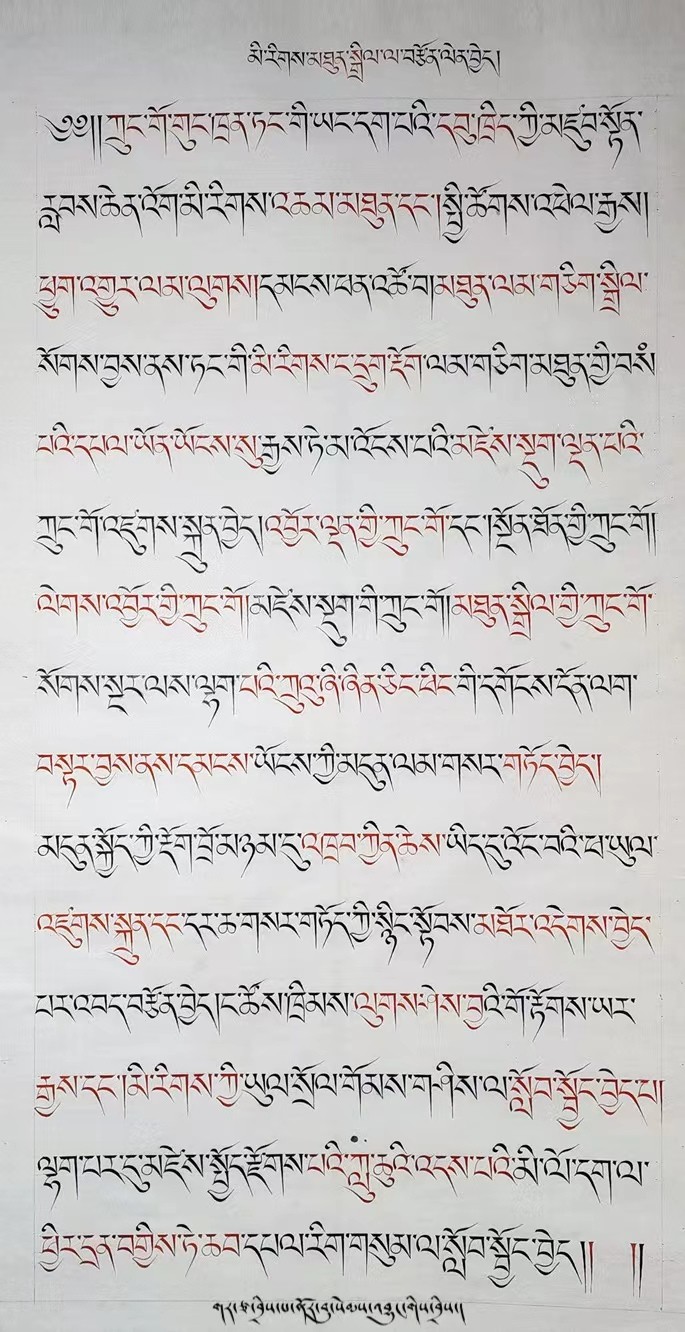 མི་རིགས་མཐུན་སྒྲིལ་ལ་བརྩོན་ལེན་བྱེད།
༄༅།།ཀྲུང་གོ་གུང་ཁྲན་ཏང་གི་ཡང་དག་པའི་དབུ་ཁྲིད་ཀྱི་མཛུབ་སྟོན་
རླབས་ཆེན་འོག་མི་རིགས་འཆམ་མཐུན་དང་།སྤྱི་ཚོགས་འཕེལ་རྒྱས།
ཕྱུག་འགྱུར་ལམ་ལུགས།དམངས་ཕན་འཚོ་བ།མཐུན་ལམ་གཅིག་སྒྲིལ་
སོགས་བྱས་ནས་ཏང་གི་མི་རིགས་ང་དྲུག་རྡོག་ལམ་གཅིག་མཐུན་གྱི་བསཾ
པའི་དཔལ་ཡོན་ཡོངས་སུ་རྒྱས་ཏེ་མ་འོངས་པའི་མཛེས་སྡུག་ལྡན་པའི་
ཀྲུང་གོ་འཛུགས་སྐྲུན་བྱེད།འབྱོར་ལྡན་གྱི་ཀྲུང་གོ་དང་།སྔོན་ཐོན་གྱི་ཀྲུང་གོ།
ལེགས་འབྱོར་གྱི་ཀྲུང་གོ།མཛེས་སྡུག་གི་ཀྲུང་གོ།མཐུན་སྒྲིལ་གྱི་ཀྲུང་གོ་
སོགས་སྔར་ལས་ལྷག་པའི་ཀྲུའུ་ཞི་ཞིན་ཅིང་ཕིང་གི་དགོངས་དོན་ལག་
བསྟར་བྱས་ནས་དམངས་ཡོངས་ཀྱི་མདུན་ལམ་གསར་གཏོད་བྱེད།
མདུན་སྐྱོད་ཀྱི་རྡོག་བྲོ་མཉམ་དུ་འཁྲབ་ཀྱིན་ཆེས་ཡིད་དུ་འོང་བའི་ཕ་ཡུལ་
འཛུགས་སྐྲུན་དང་དར་ཆ་གསར་གཏོད་ཀྱི་སྙིང་སྟོབས་མཐོར་འདེགས་བྱེད་
པར་འབད་བརྩོན་བྱེད།ང་ཚོས་ཁྲིམས་ལུགས་ཤེས་བྱའི་གོ་རྟོགས་ཡར་
རྒྱས་དང་།མི་རིགས་ཀྱི་ཡུལ་སྲོལ་གོམས་གཤིས་ལ་སློབ་སྦྱོང་བྱེད་པ།
ལྷག་པར་དུ་མཛེས་སྤྱོད་རྫོགས་པའི་ཀླུ་ཆུའི་འདས་པའི་མི་ལོ་དག་ལ་
ཕྱིར་དྲན་བགྱིས་ཏེ་ཆབ་དཔལ་རིག་གསུམ་ལ་སློབ་སྦྱོང་བྱེད།། །།